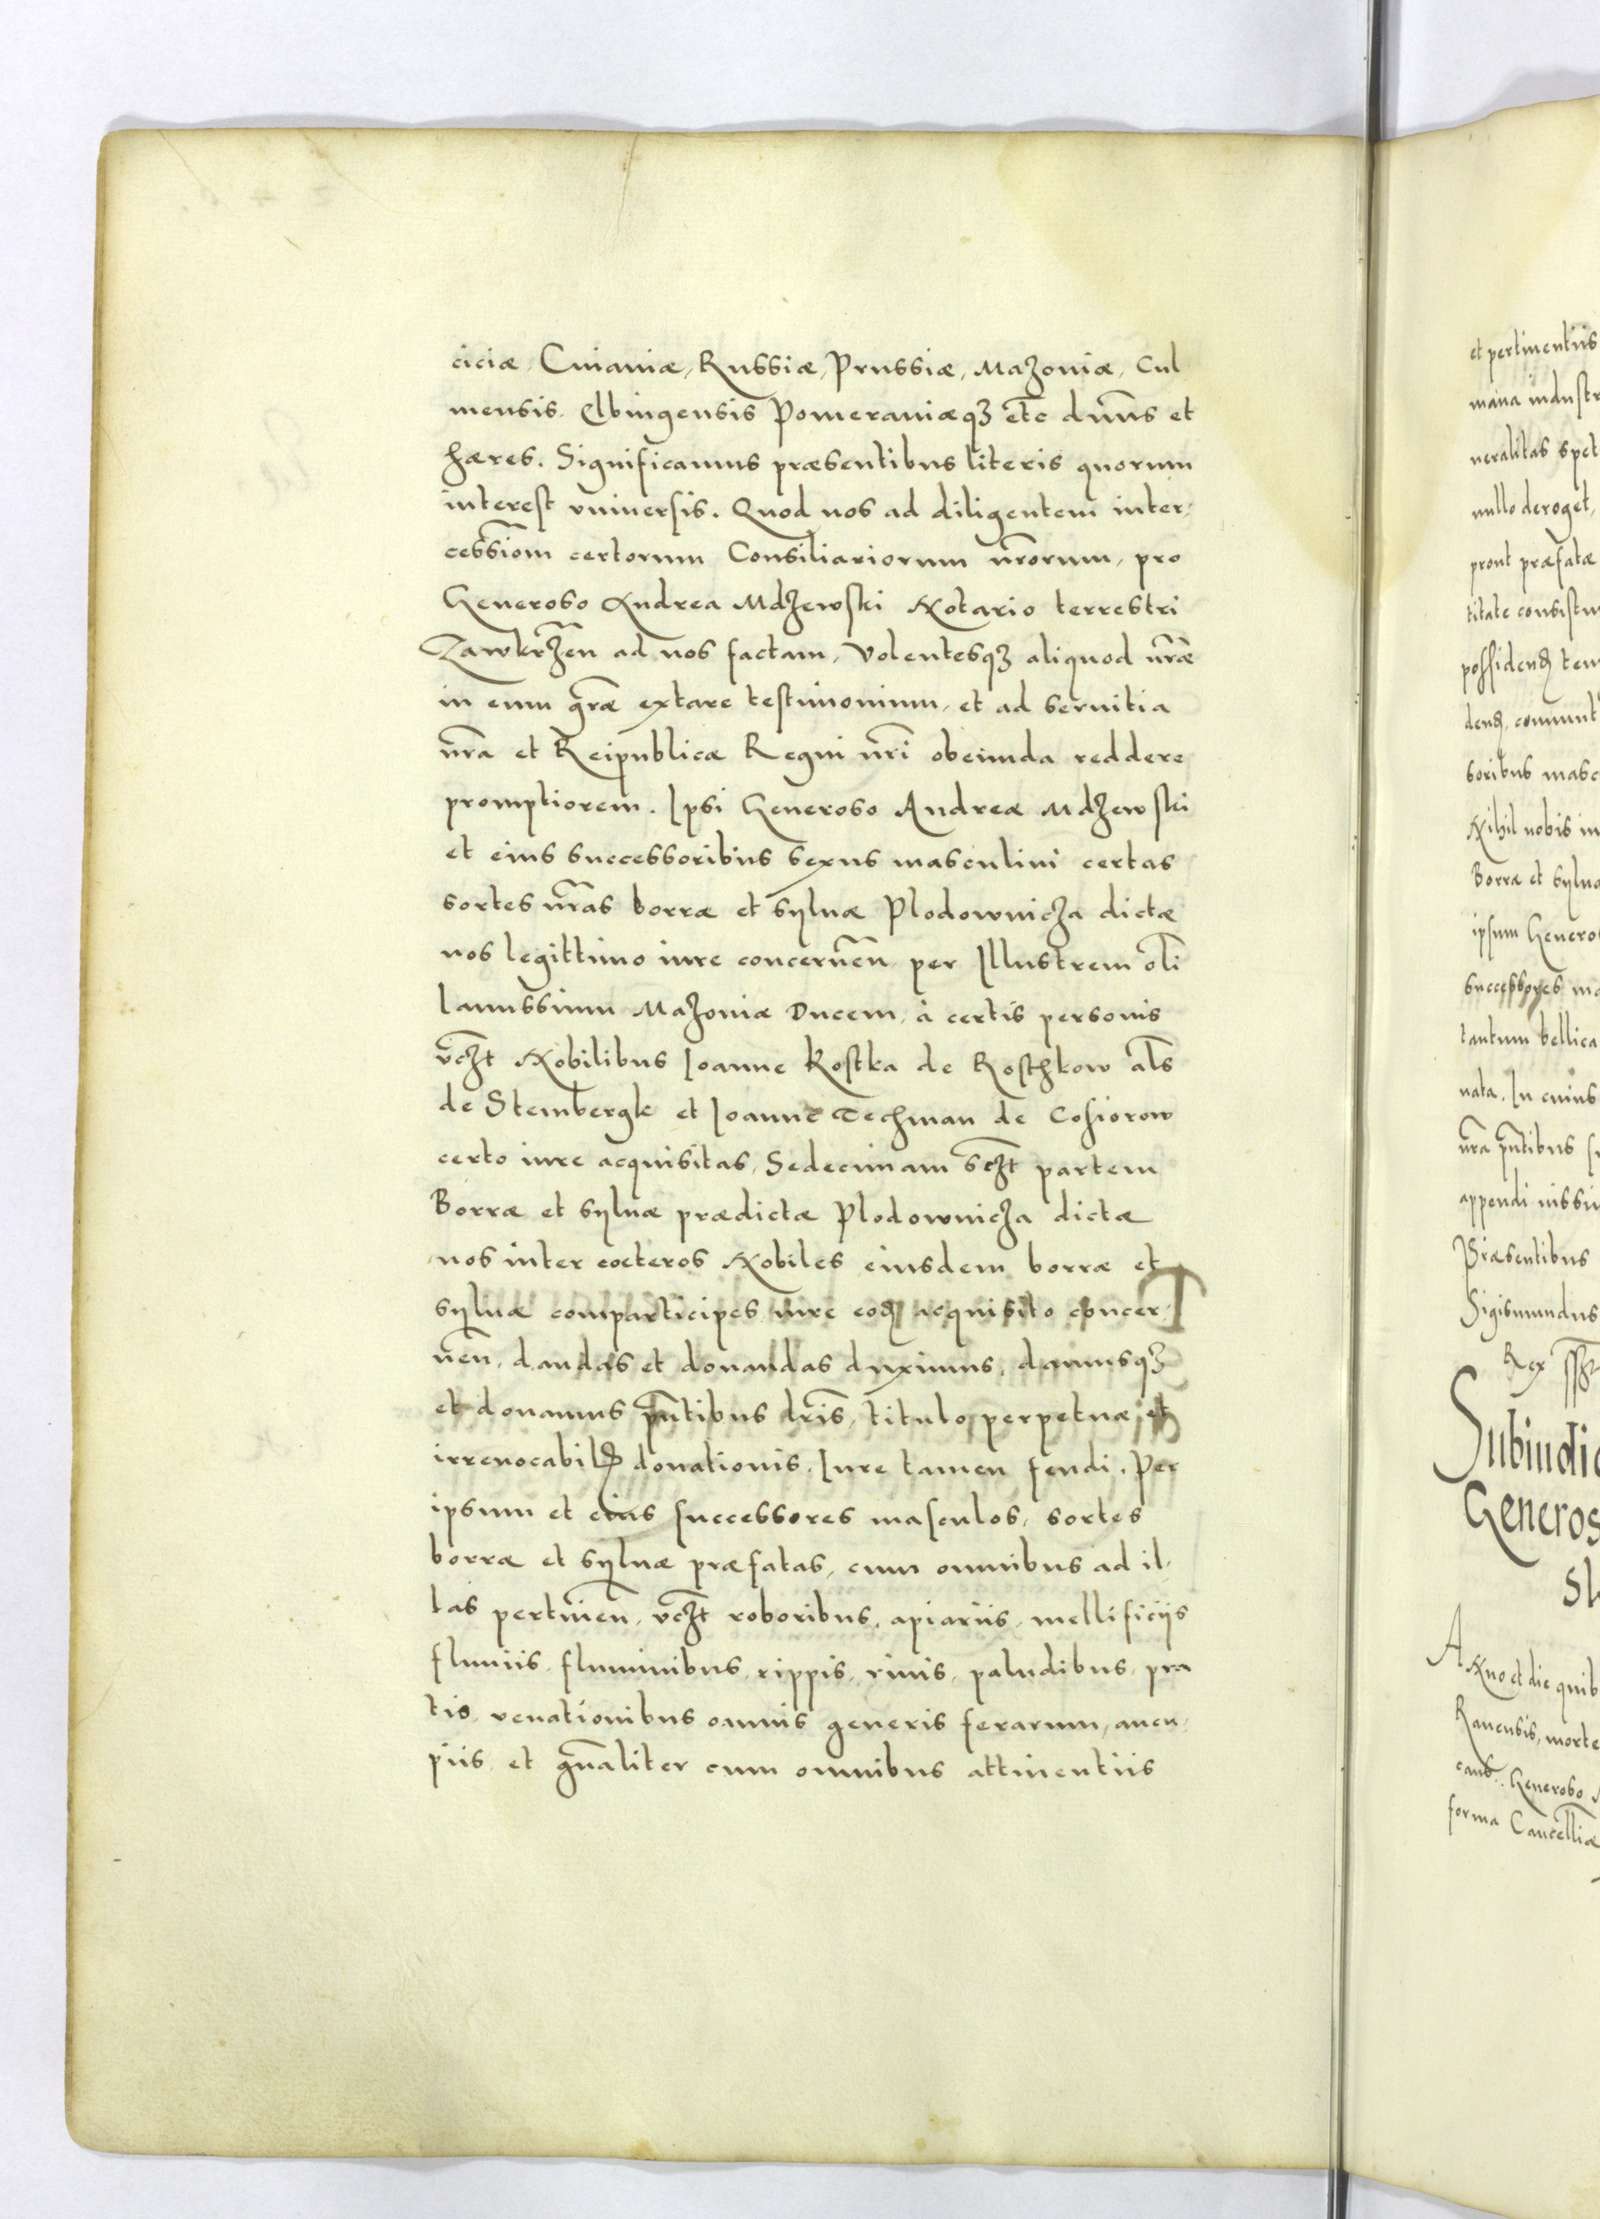 ciciæ, Cuiauiæ, Russiæ, Prussiæ, Mazoniæ, Cul
mensis, Elbingensis Pomeraniæqz etc dnns et
hæres. Significamus præsentibus literis quorum
interest vniuersis. Quod nos ad diligentem inter,
cessiom certorum Consiliariorum nrorum, pro
Generoso Andrea Mdzewski Notario terrestri
Zawkrzen ad nos factam, Volentesqz aliquod nræ
in eum græ extare testimonium, et ad seruitia
nra et Reipublicæ Regni nri obeunda reddere
promptiorem. Ipsi Generoso Andreæ Mdzewski
et eius successoribus sexus masculini certas
sortes nras borræ et syluæ Plodownicza dictæ
nos legittimo iure concernen per Illustrem oli
Ianussium Mazoniæ Ducem, à certis personis
vczt Nobilibus Ioanne Kostka de Rosthkow als
de Stembergk et Ioanne Techman de Cosiorow
certo iure acquisitas, Sedecimam sczt partem
Borræ et syluæ prædictæ Plodownicza dictæ
nos inter coeteros Nobiles eiusdem borræ et
syluæ comparticipes iure eod acquisito concer,
nen, dandas et donandas duximus, damusqz
et donamus pntibus lris, titulo perpetuæ et
irreuocabil donationis, Iure tamen feudi. Per
ipsum et eius successores masculos, sortes
borræ et syluæ præfatas, cum omnibus ad il,
las pertinen, vczt roboribus, apiariis, mellificiis
fluuiis, fluminibus, rippis, riuis, paludibus, pra
tis, venationibus omnis generis ferarum, aucu,
piis, et gnaliter cum omnibus attinentiis
et pertinentiis
mana industr
neralitas spet
nullo deroget,
prout præfatæ
titate consistu
possidend ten
dend, comunit
soribus masc
Nihil nobis in
Borræ et sylua
ipsum Genero
successores ma
tantum bellica
nata. In cuius
nra pntibus s
appendi iussi
Præsentibus
Sigismundus
Rex ss
Subiudic
Generos
sk
Anno et die quib
Rauensis, morte
cans. Generoso
forma Cancelliæ